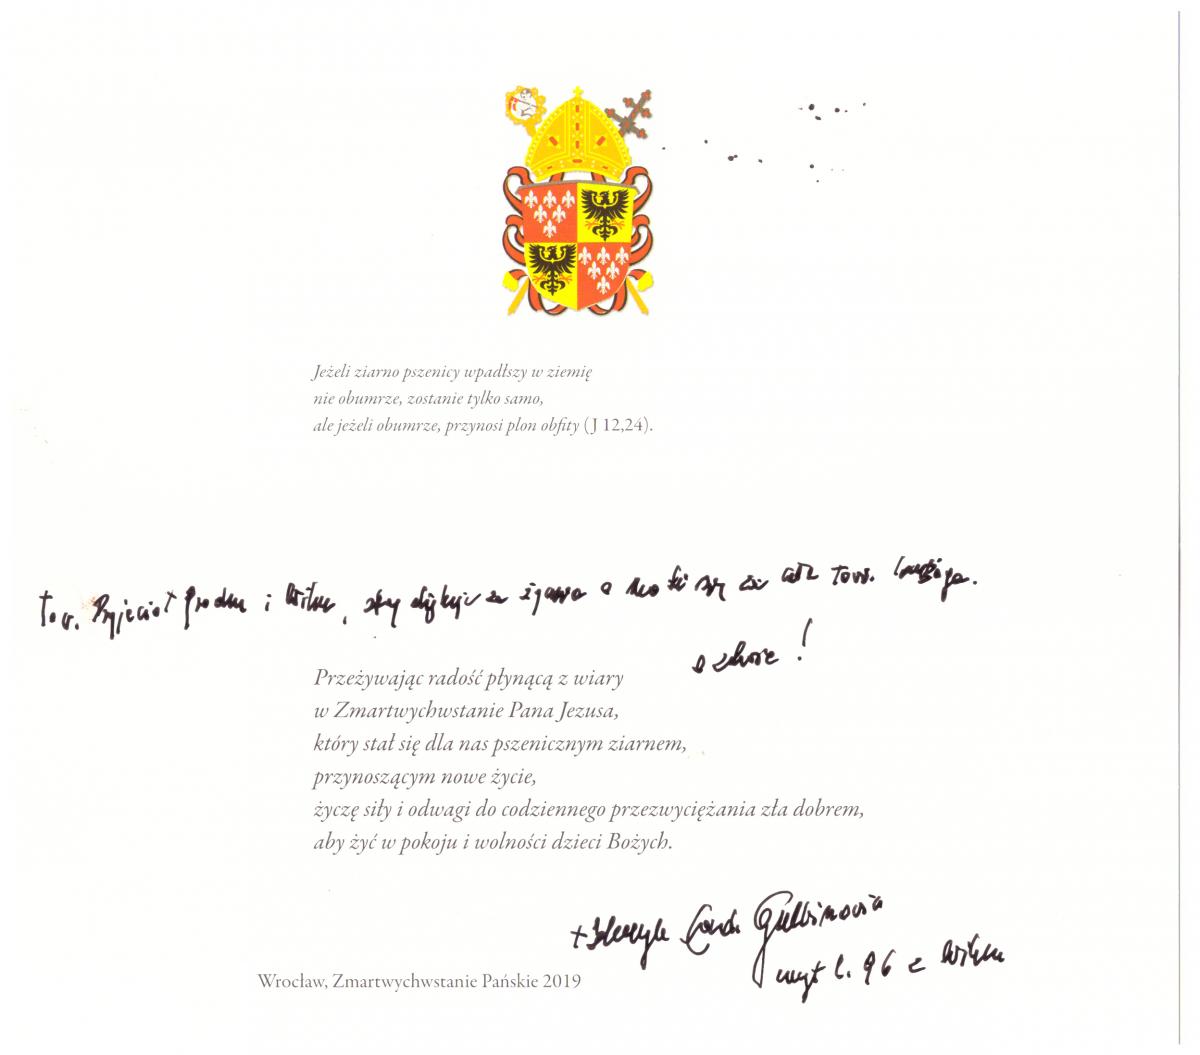 Jeżeli ziarno pszenicy wpadłszy w ziemię
nie obumrze, zostanie tylko samo,
ale jeżeli obumrze, przynosi plon obfity (J 12,24).
Tow. Przyjaciół Grodna i Wilna, za i się za Tow.
o zdrowie!
Przeżywając radość płynącą z wiary
w Zmartwychwstanie Pana Jezusa,
który stał się dla nas pszenicznym ziarnem,
przynoszącym nowe życie,
życzę siły i odwagi do codziennego przezwyciężania zła dobrem,
aby żyć w pokoju i wolności dzieci Bożych.
+ Henryk Gulbinowicz
l. 96 z Wilna
Wrocław, Zmartwychwstanie Pańskie 2019